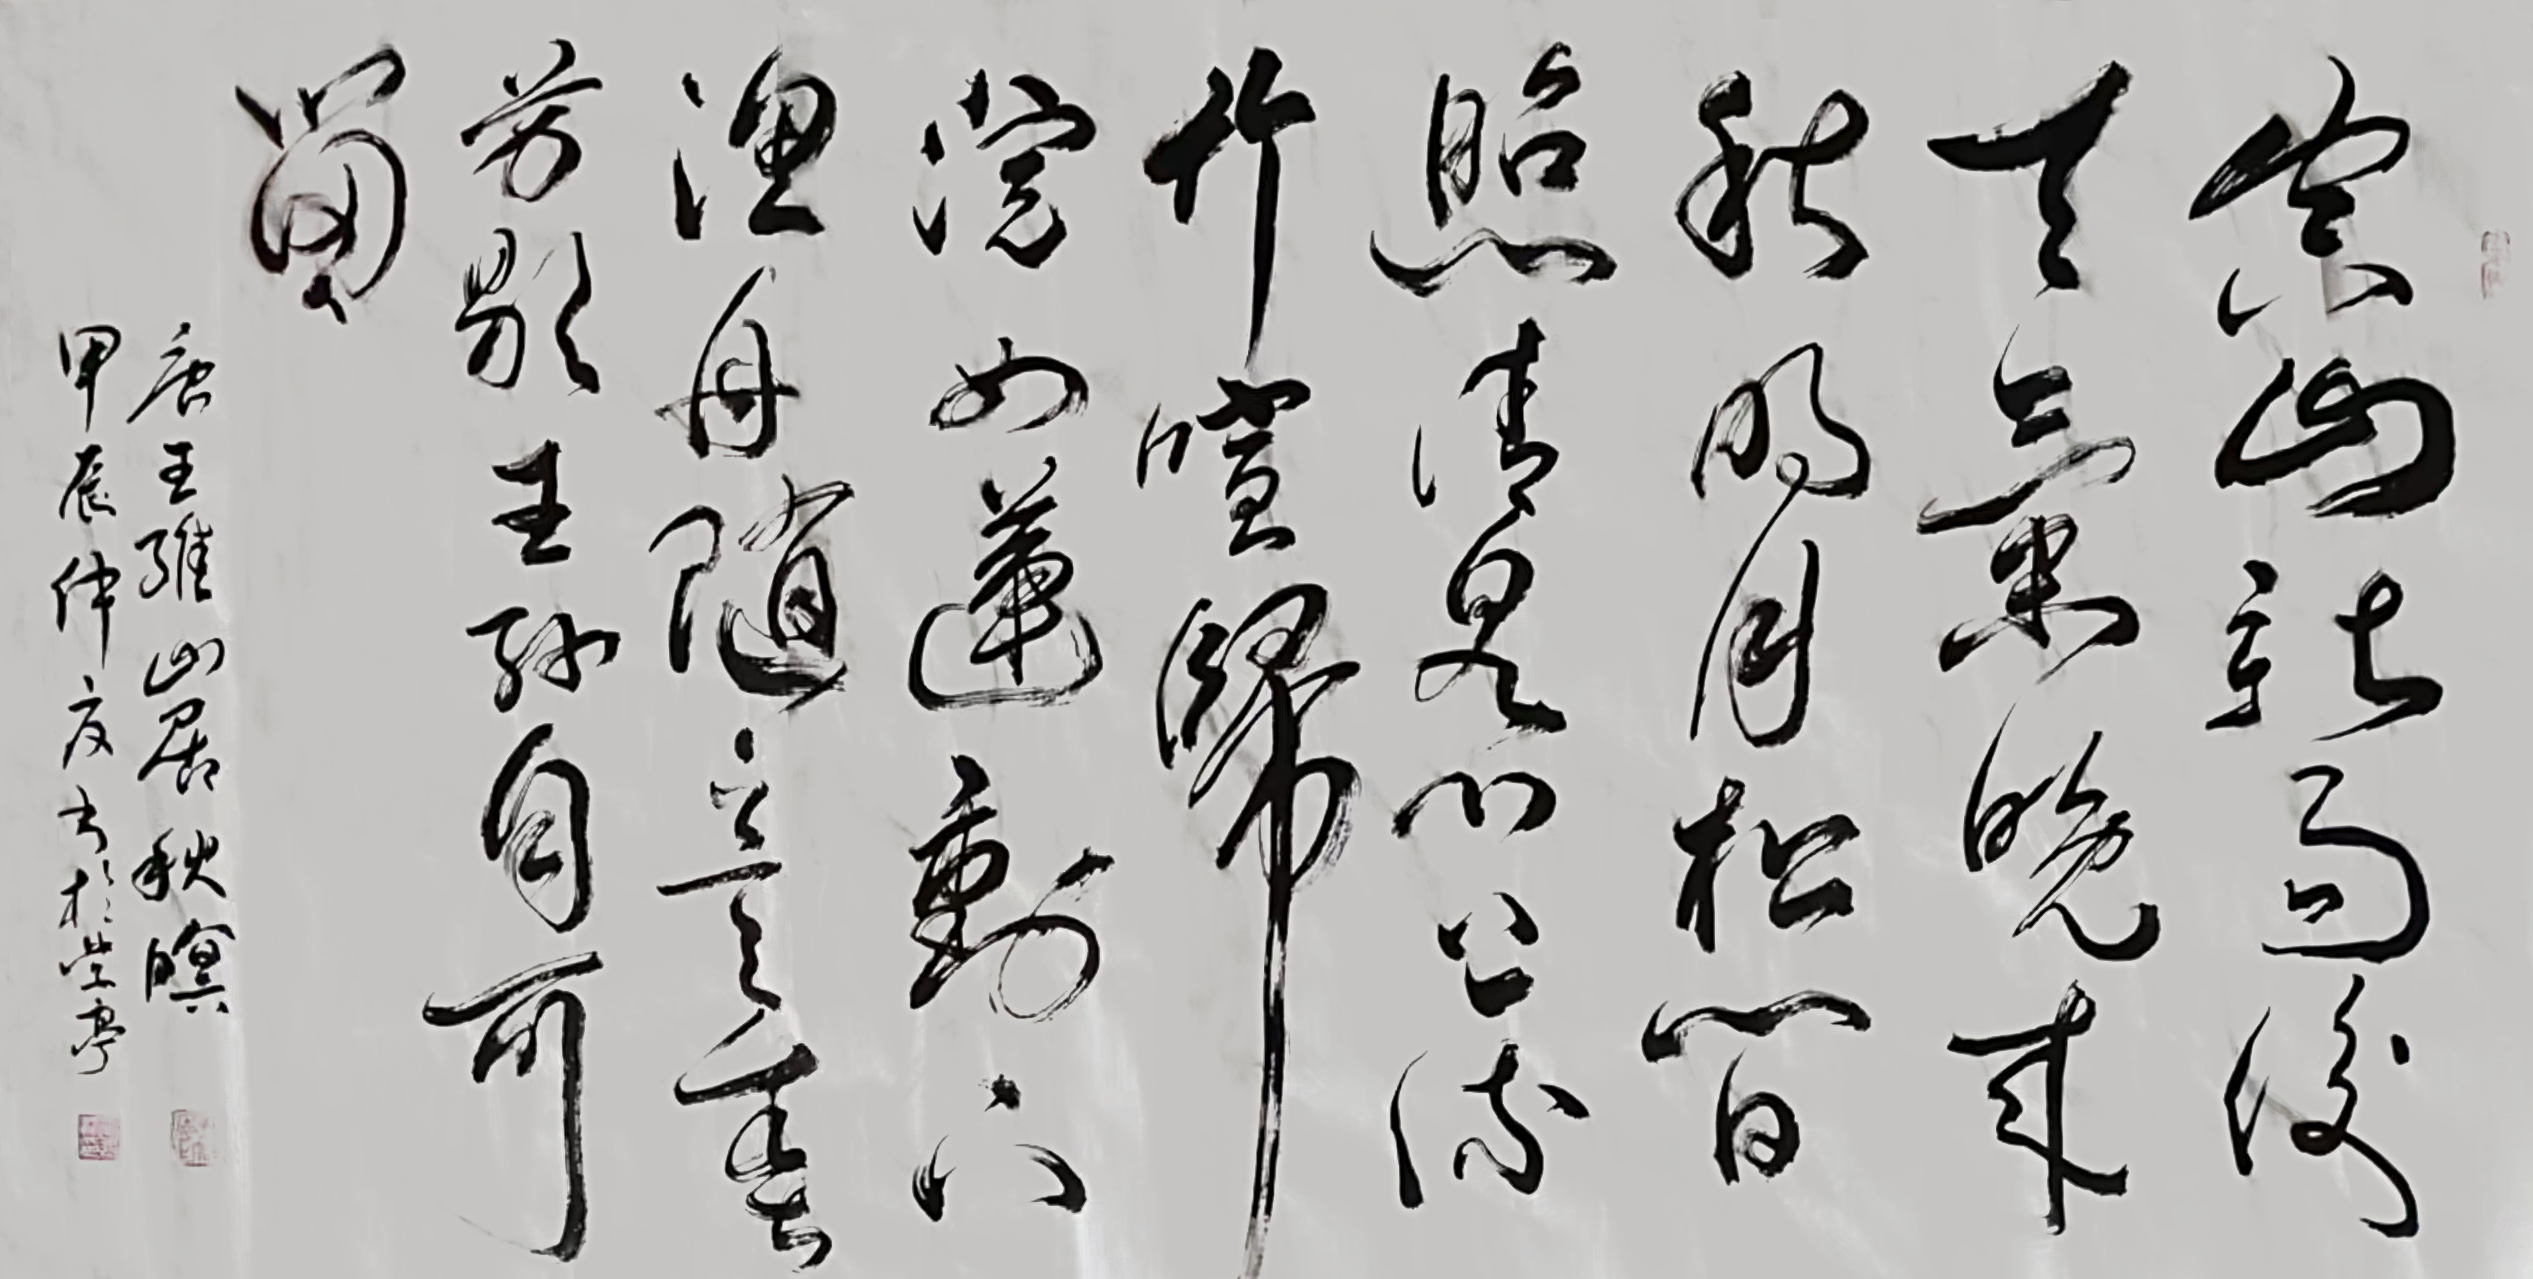 空山新雨後
天氣晚来
秋明月松間
照清泉石上流
竹喧歸
浣女蓮動下
漁舟隨意春
芳歇王孫自可
留
唐王維山居秋暝
甲辰仲夏书於亭